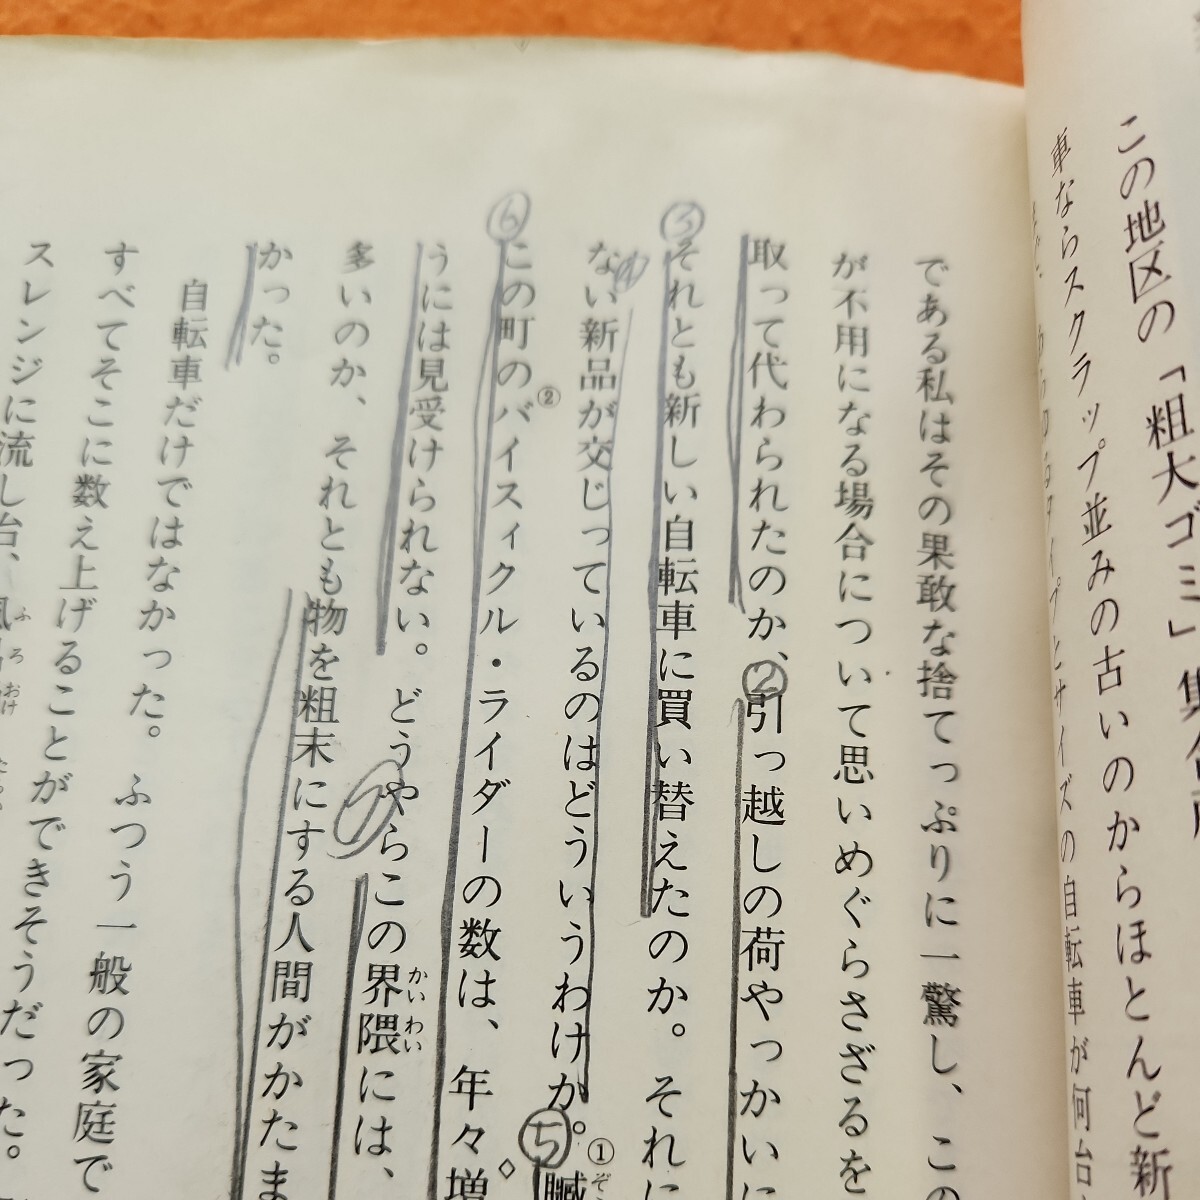 この地区の「粗大ゴミ」集
車ならスクラップ並みの古いのからほとんど新
タイプとサイズの自転車が何台
である私はその果敢な捨てっぷりに一驚し、この
が不用になる場合について思いめぐらさざるを
取って代わられたのか、②引っ越しの荷やっかいに
③それとも新しい自転車に買い替えたのか。それに
ない新品が交じっているのはどういうわけか。⑤贓①
⑥この町のバイスィクル・ライダーの数は、年々増②
うには見受けられない。どうやらこの界隈には、かいわい
多いのか、それとも物を粗末にする人間がかたま
かった。
自転車だけではなかった。ふつう一般の家庭で
すべてそこに数え上げることができそうだった。
スレンジに流し台、ふろおけ